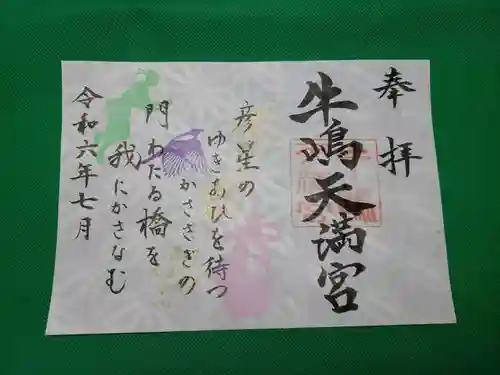 奉拝
牛嶋天満宮
彦星の
ゆきあひを待つ
かささぎの
門わたる橋を
我にかさなむ
令和六年七月